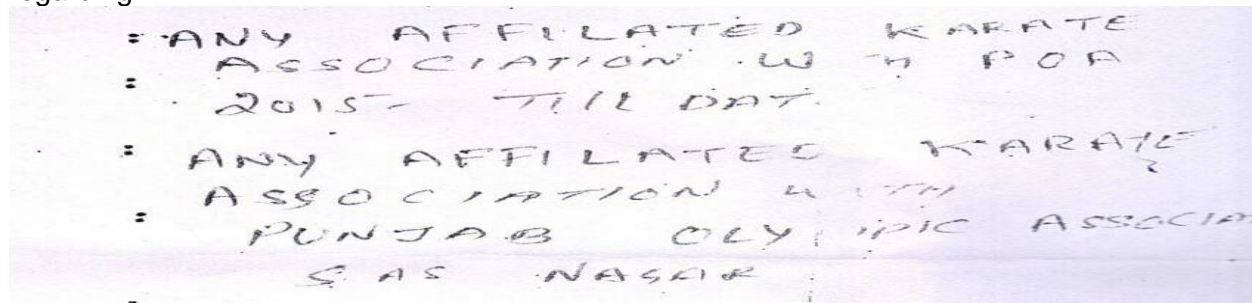 ANY AFFILATED KARATE
ASSOCIATION W TH POA
2015- TILL DAT.
ANY AFFILATED KARATE
ASSOCIATION WITH
PUNJAB OLY IPIC ASSOCIA
SAS NAGAR